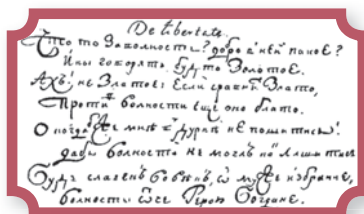 De libertate.
Что то за волность? добро в ней какое?
Ины говорятъ, будто золотое.
Ахъ! не златое: если сравнить злато,
Против волности еще оно блато.
О когда бы же мнѣ в дурнѣ не пошитись!
дабы волности не моглъ как лишитись
Будь славенъ вовѣкъ, о муже избранне,
волности отче Герою Богдане.